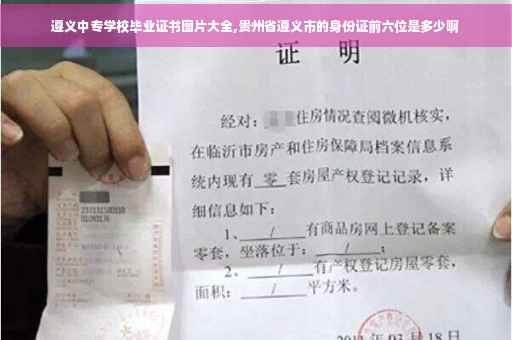 遵义中专学校毕业证书图片大全,贵州省遵义市的身份证前六位是多少啊
证 明
经对: 住房情况查阅微机核实,
在临沂市房产和住房保障局档案信息系
统内现有 零 套房屋产权登记记录，详
细信息如下:
1、 / 有商品房网上登记备案
零套，坐落位于: / ;
2、 / 有产权登记房屋零套,
面积: / 平方米。
03 月 18 日